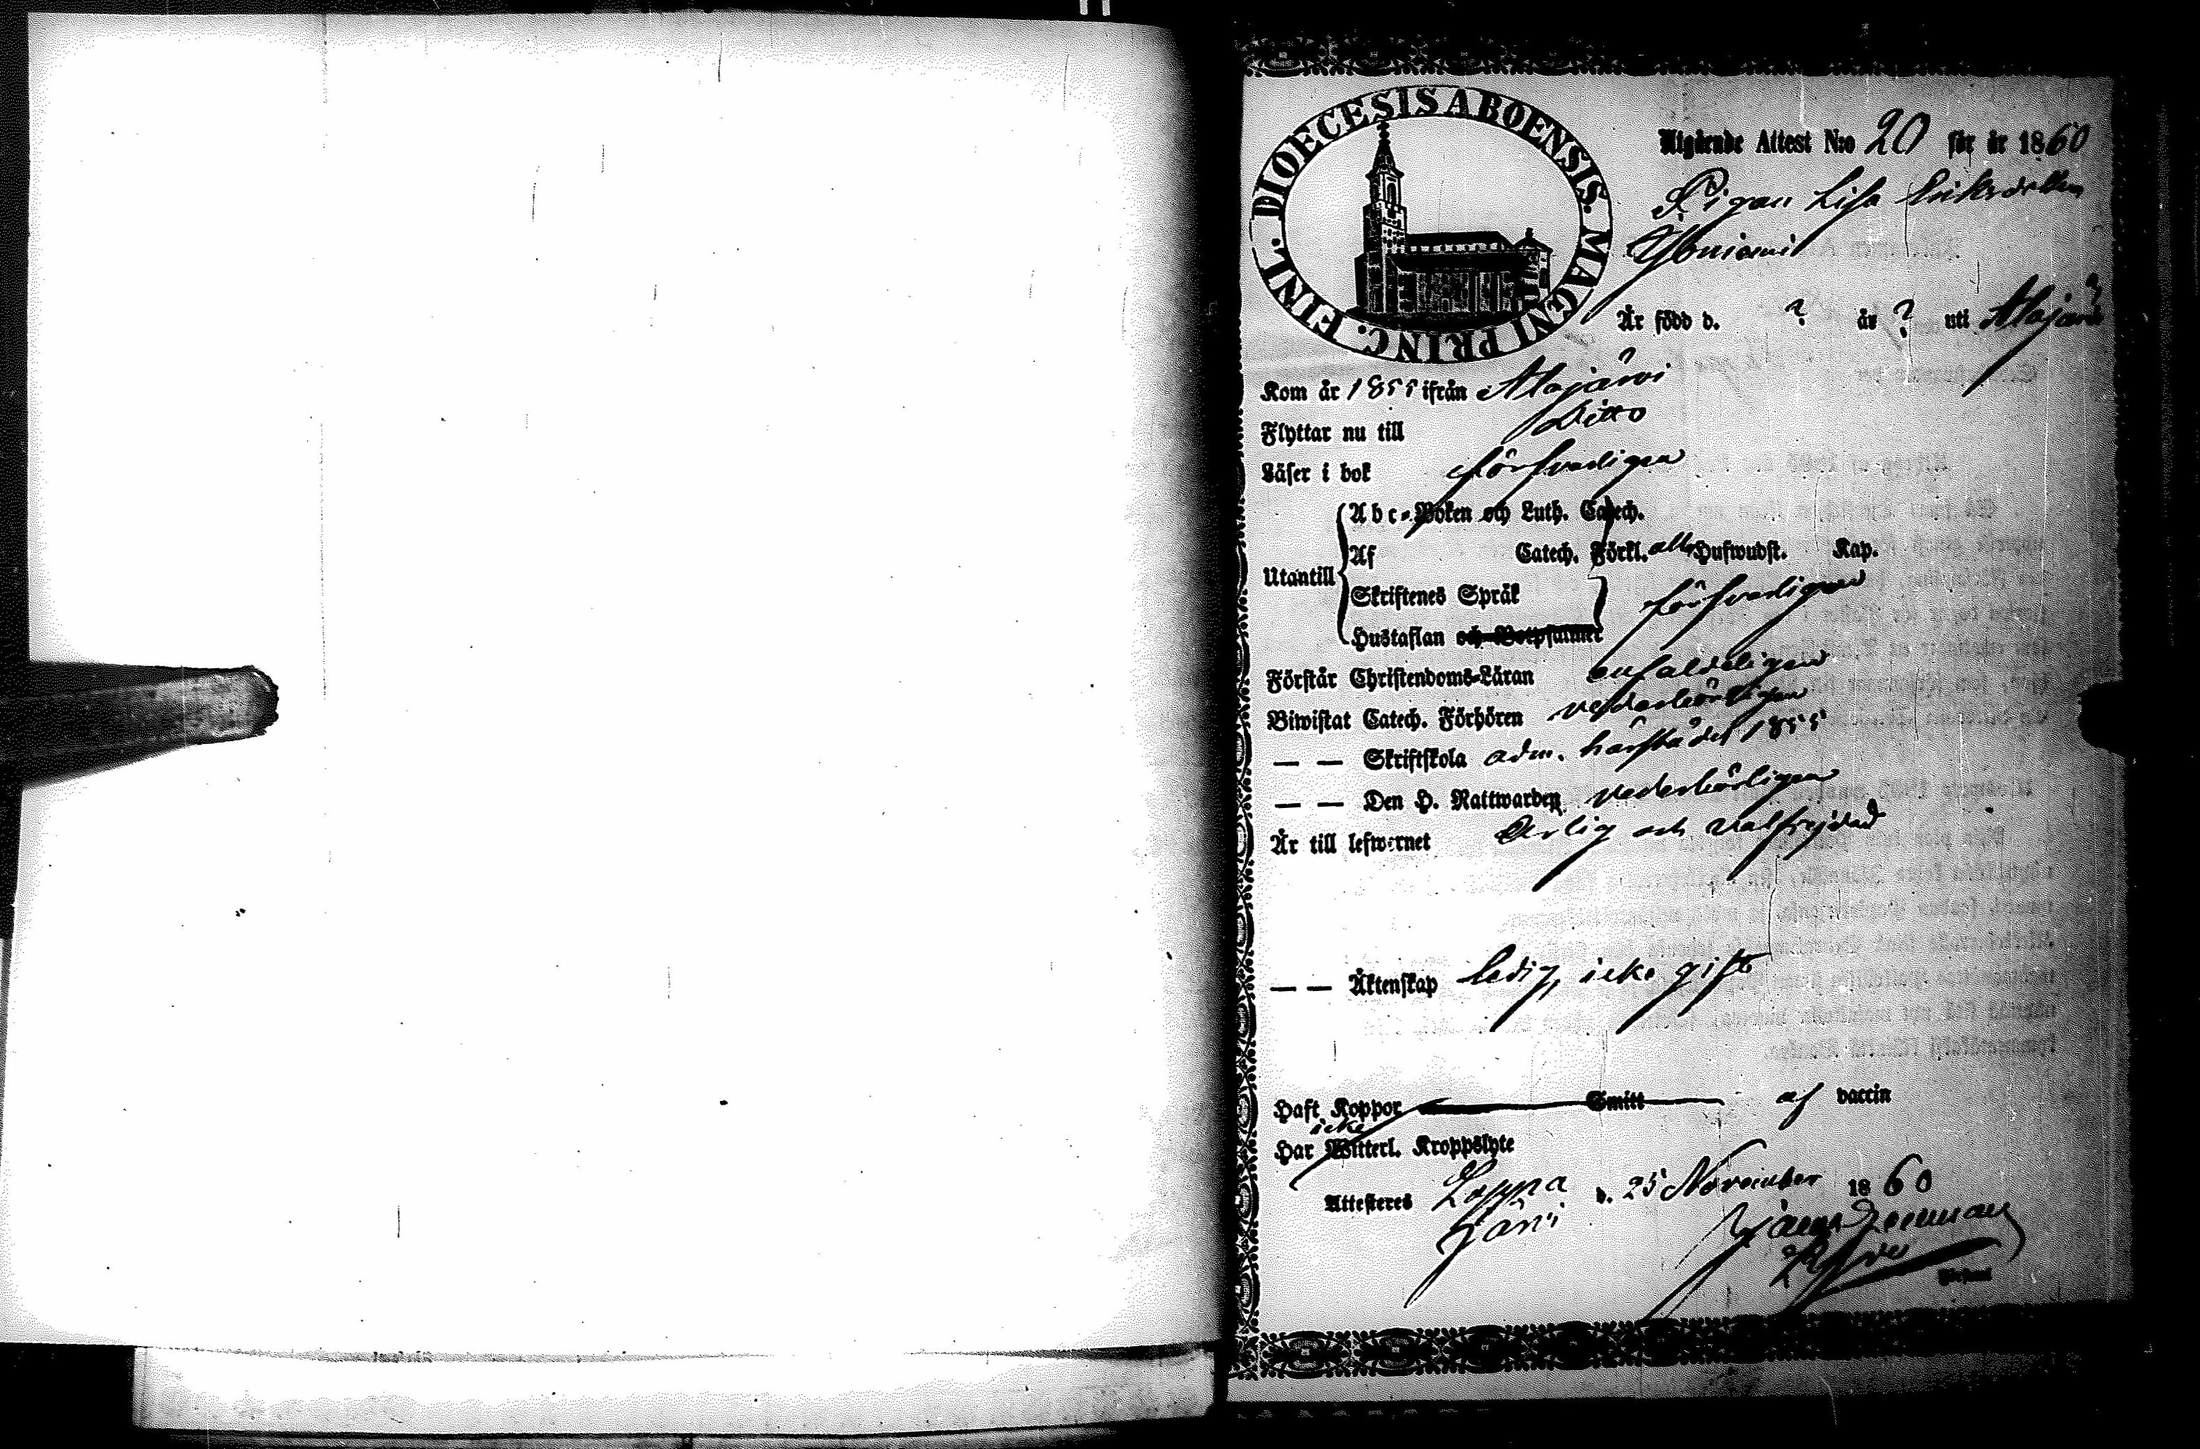 DIOECESIS ABOENSIS. MAGNI PRINC. FINL.
Utgående Attest N:o 20 för år 1860
Pigan Lisa Eriksdotter
Är född d. ? år ? uti Alajärvi
Kom år 1855 ifrån Alajärvi
Flyttar nu till Ditto
Läser i bok försvarligen
Utantill
Abc-Boken och Luth. Catech.
Af Catech. Förkl. alla Hufwudst. Kap.
Skriftenes Språk försvarligen
Hustaflan och Botpsalmer
Förstår Christendoms-Läran enfaldeligen
Biwistat Catech. Förhören vederbörligen
— — Skriftskola adm. härstädes 1855
— — Den H. Nattwarden vederbörligen
Är till lefwernet Ärlig och välfrejdad
— — Äktenskap ledig, icke gift
Haft Koppor Smitt af vaccin
icke
Har Witterl. Kroppslyte
Attesteres Lappa d. 25 November 1860
järvi